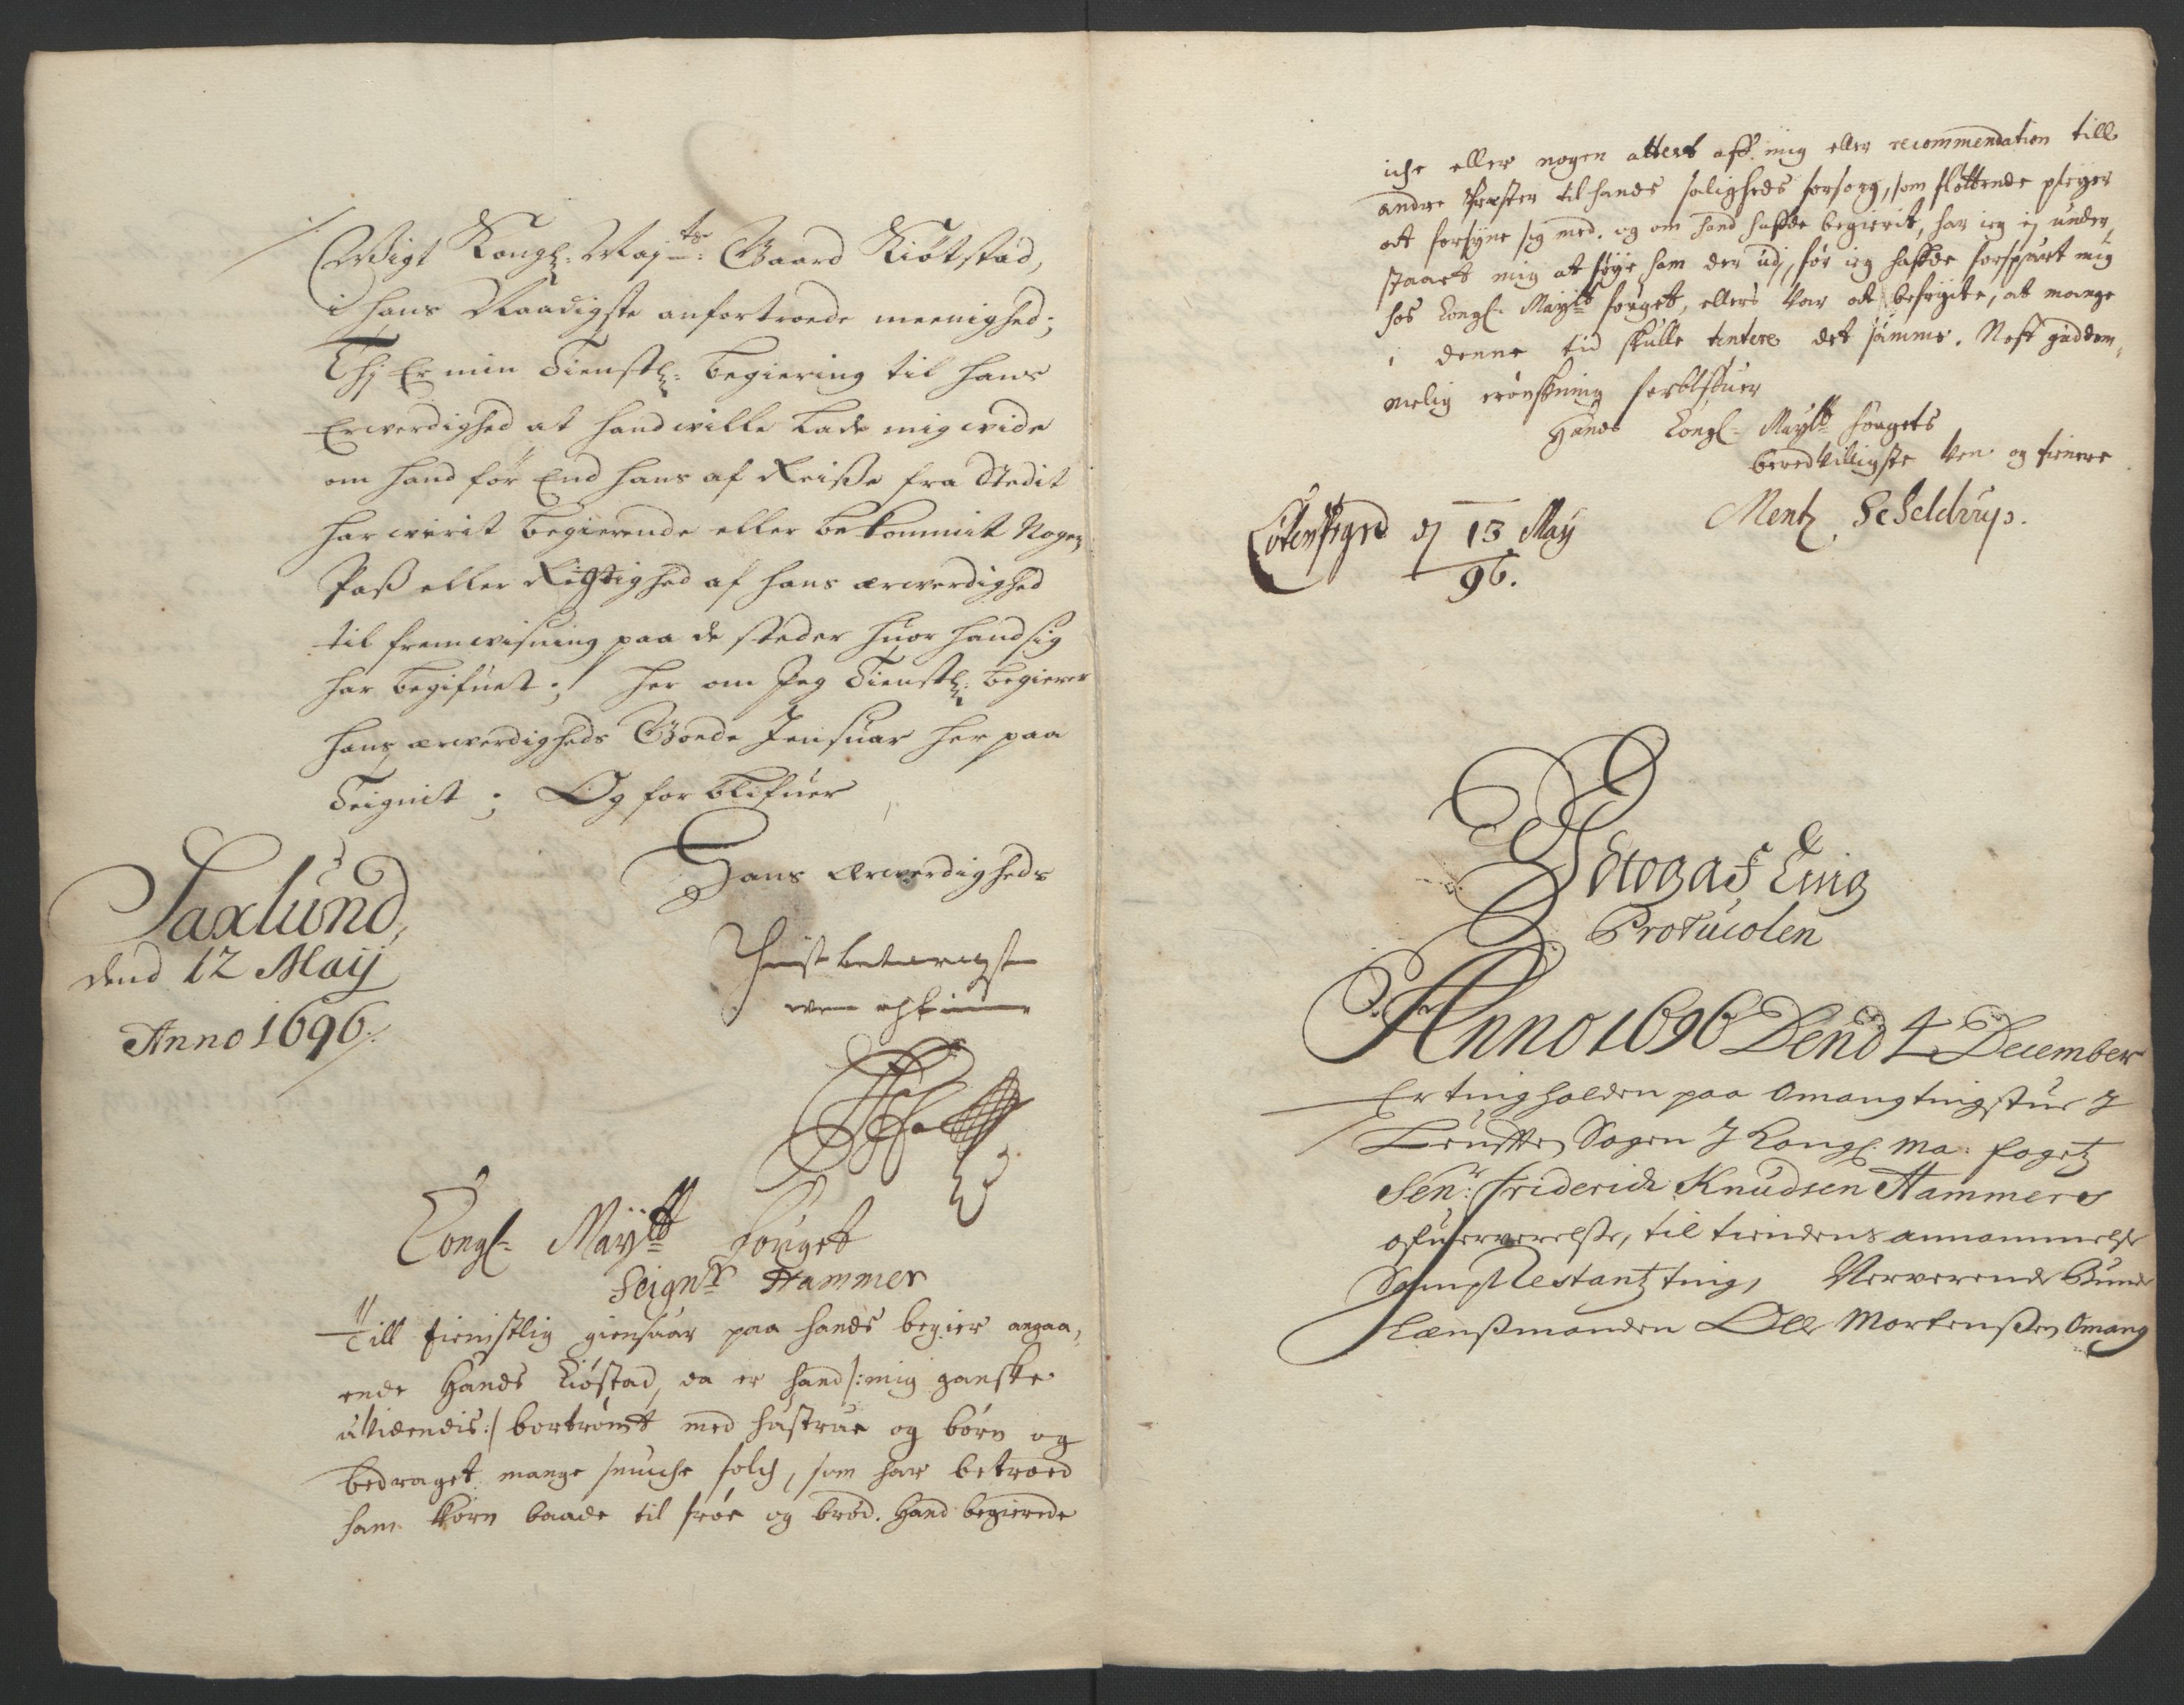 Wigt Kongl: Maj:ts Gaard Kiøtstad,
i hans Naadigste anfortroede meenighed;
Thj Er min Tienstl: begiering til hans
Erwerdighed at hand wille lade mig wide
om hand før End hans af Reisse fra Stedit
har werit begierende eller bekommit Nogen
Pass eller Rigtighed af hans ærwerdighed
til fremwisning paa de steder huor hand sig
har begifuet; her om Jeg Tienstl: begierer
hans ærwerdigheds Goede Jensuar her paa
Teignit; Og forblifuer
Hans ærwerdigheds
Saxlund,
dend 12 Maij
Anno 1696.
Kongl: Mayts fouget
Seignr Hammer
Till tienistlig giensuar paa hands begier angaa,
ende Hands Kiøstad, da er hand /:mig ganske
uVidendis:/ bortrømt med hustrue og børn og
bedraget mange smuche folch, som har betroed
ham korn baade til froe og brød. Hand begierede
iche eller nogen attest aff mig eller recommendation till
andre Præster til hands saligheds forsorg, som fløttende pleyer
att forsyne sig med. og om hand haffde begierit, har ieg ej under,
staaet mig at føye ham der udj, før ieg haffde forspurt mig
hos Kongl: Mayts fouget, ellers var at befrygte, at mange
i denne tid skulle tentere det samme. Nest guddom,
melig ønskning forblifuer
Hands Kongl: Mayts fougets
beredvilligste Ven og tienere
Mentz Scheldrup.
Løtens Prgrd dj 13 May
96.
Extog af Ting
Protucolen
Anno 1696 Dend 4 December
Er ting holden paa Omang tingstue J
Sogen J Kongl: Ma: fogetz
Senr: Friderich Knudsen Hammers
ofuerverelse, til tiendens annammelse
Sampt Restantz ting, Nerverende Bunde
Lænssmanden Olle Mortenssen Omang